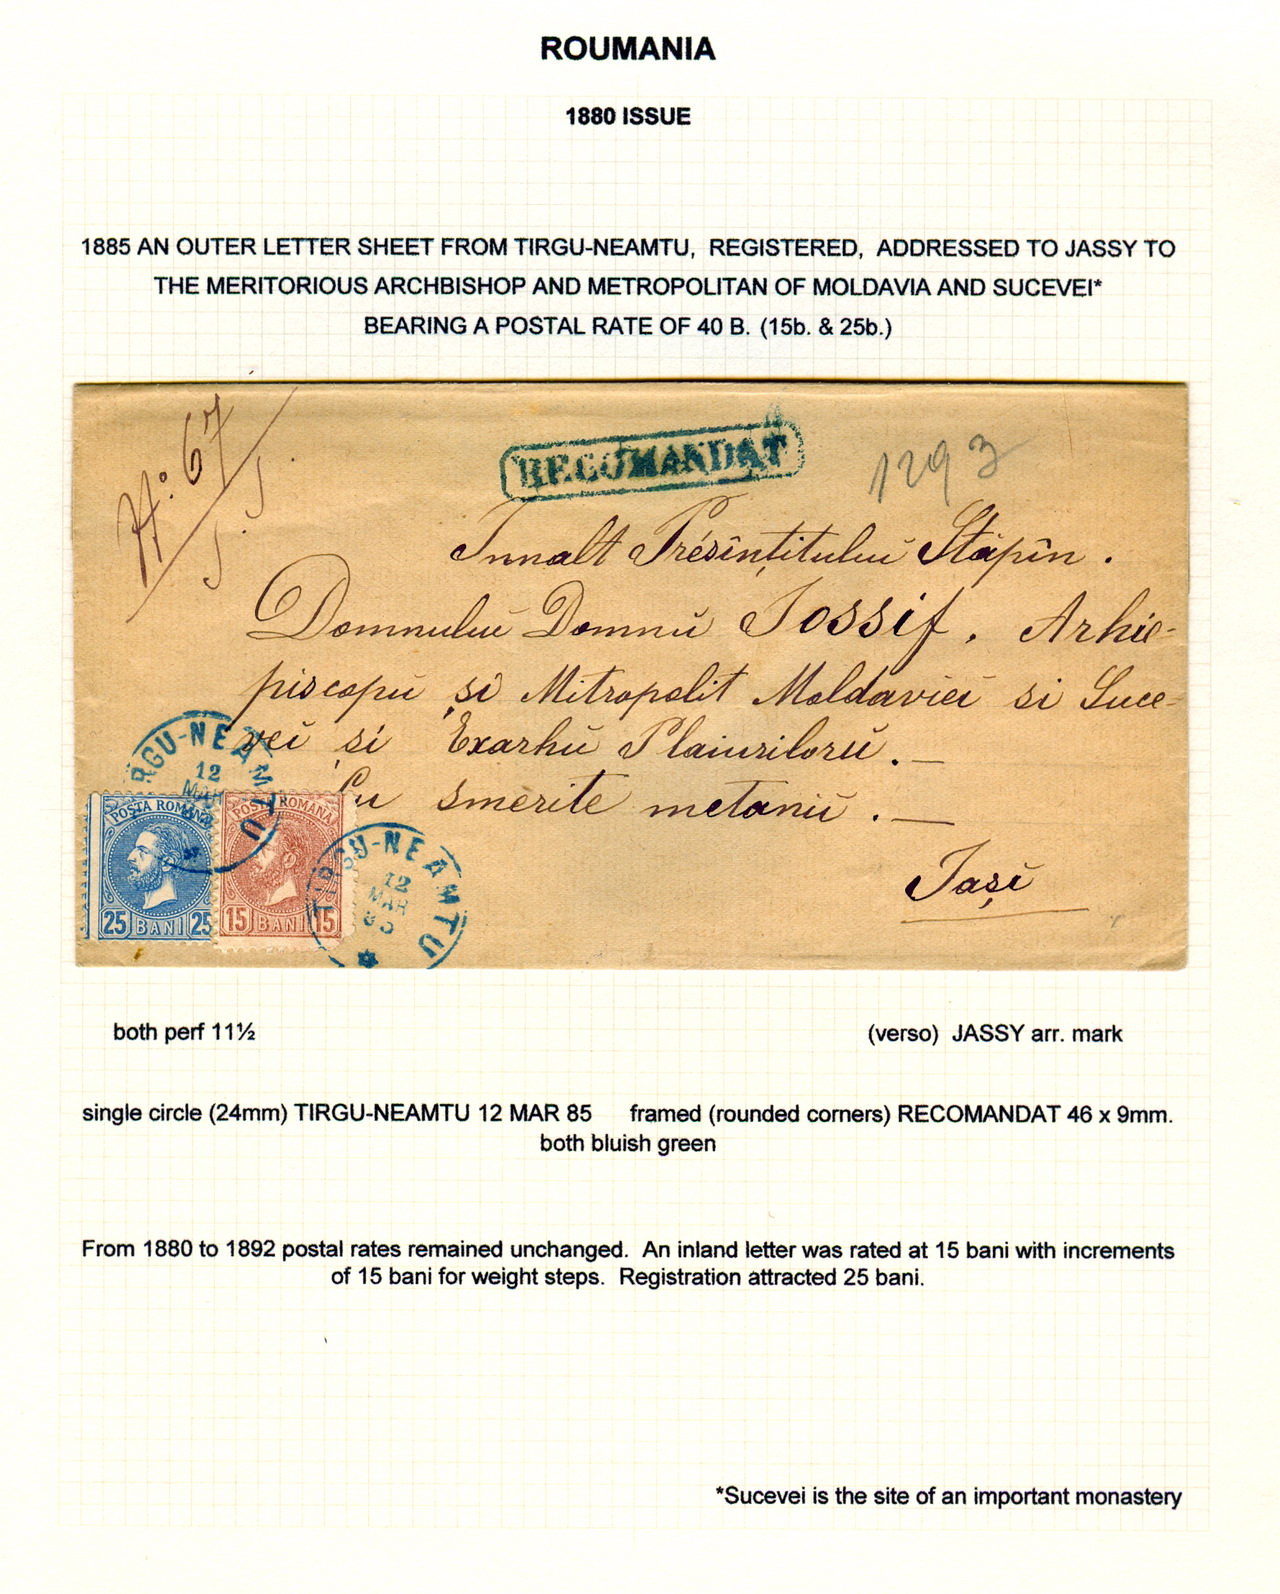 ROUMANIA
1880 ISSUE
1885 AN OUTER LETTER SHEET FROM TIRGU-NEAMTU, REGISTERED, ADDRESSED TO JASSY TO
THE MERITORIOUS ARCHBISHOP AND METROPOLITAN OF MOLDAVIA AND SUCEVEI*
BEARING A POSTAL RATE OF 40 B. (15b. & 25b.)
No: 67
RECOMANDAT
1293
Innalt Présînțitului Stăpîn.
Domnului Domnŭ Iossif. Arhie-
piscopŭ și Mitropolit Moldaviei si Suce-
vei si Exarhŭ Plaiurilorŭ.—
Cu smerite metanii.—
Iași
TIRGU-NEAMTU
12
MAR
POSTA ROMANA
25 BANI 25
POSTA ROMANA
15 BANI 15
TIRGU-NEAMTU
12
MAR
85
both perf 11½
(verso) JASSY arr. mark
single circle (24mm) TIRGU-NEAMTU 12 MAR 85 framed (rounded corners) RECOMANDAT 46 x 9mm.
both bluish green
From 1880 to 1892 postal rates remained unchanged. An inland letter was rated at 15 bani with increments
of 15 bani for weight steps. Registration attracted 25 bani.
*Sucevei is the site of an important monastery